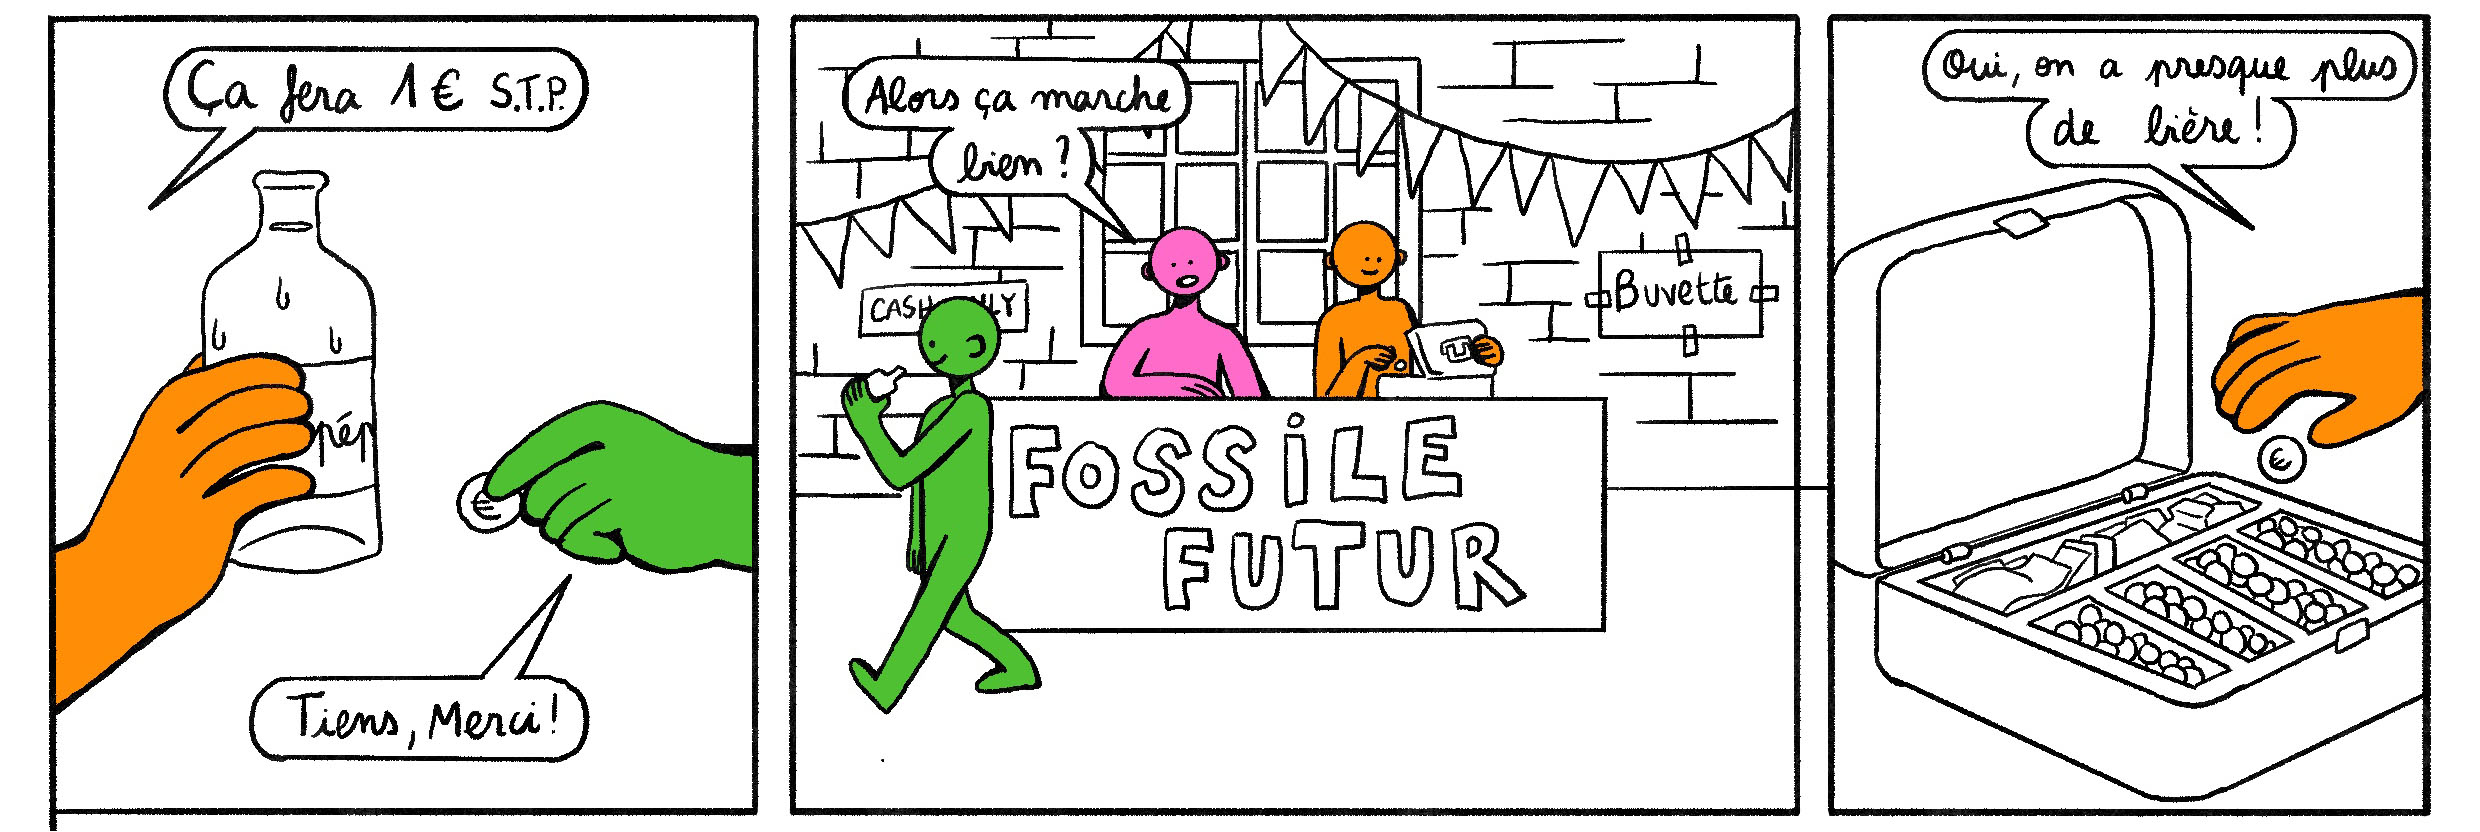 Ça fera 1€ S.T.P.
pép
Tiens, Merci!
Alors ça marche
bien ?
CASH ONLY
Buvette
FOSSiLE
FUTUR
Oui, on a presque plus
de bière !
€